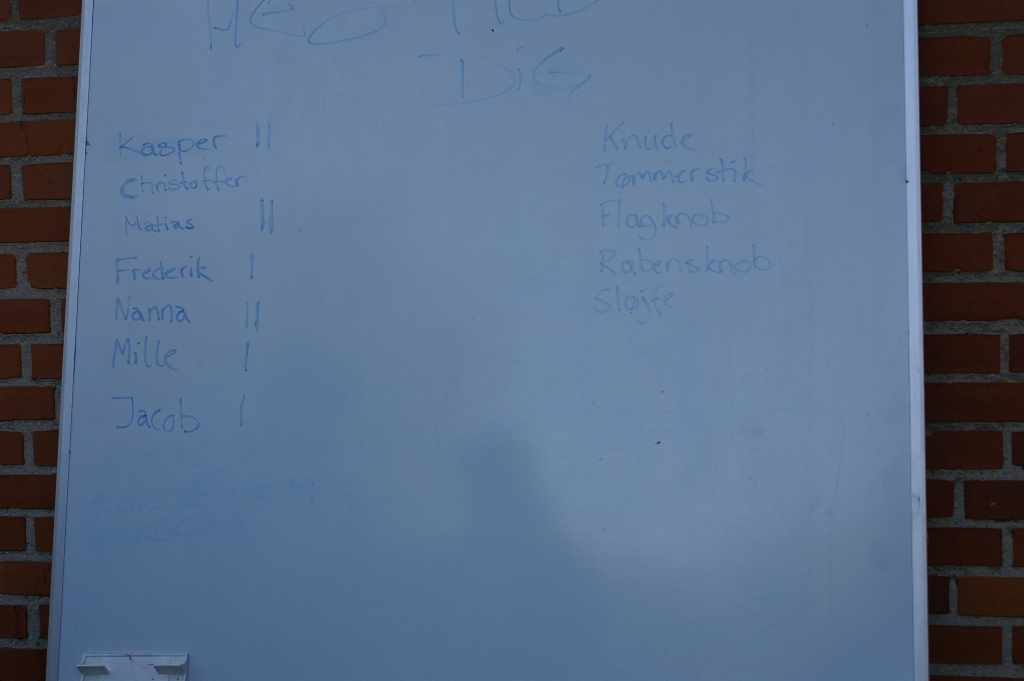 DIG
Kasper II
Christoffer
Matias II
Frederik I
Nanna II
Mille I
Jacob I
Knude
Tømmerstik
Flagknob
Råbensknob
Sløjfe